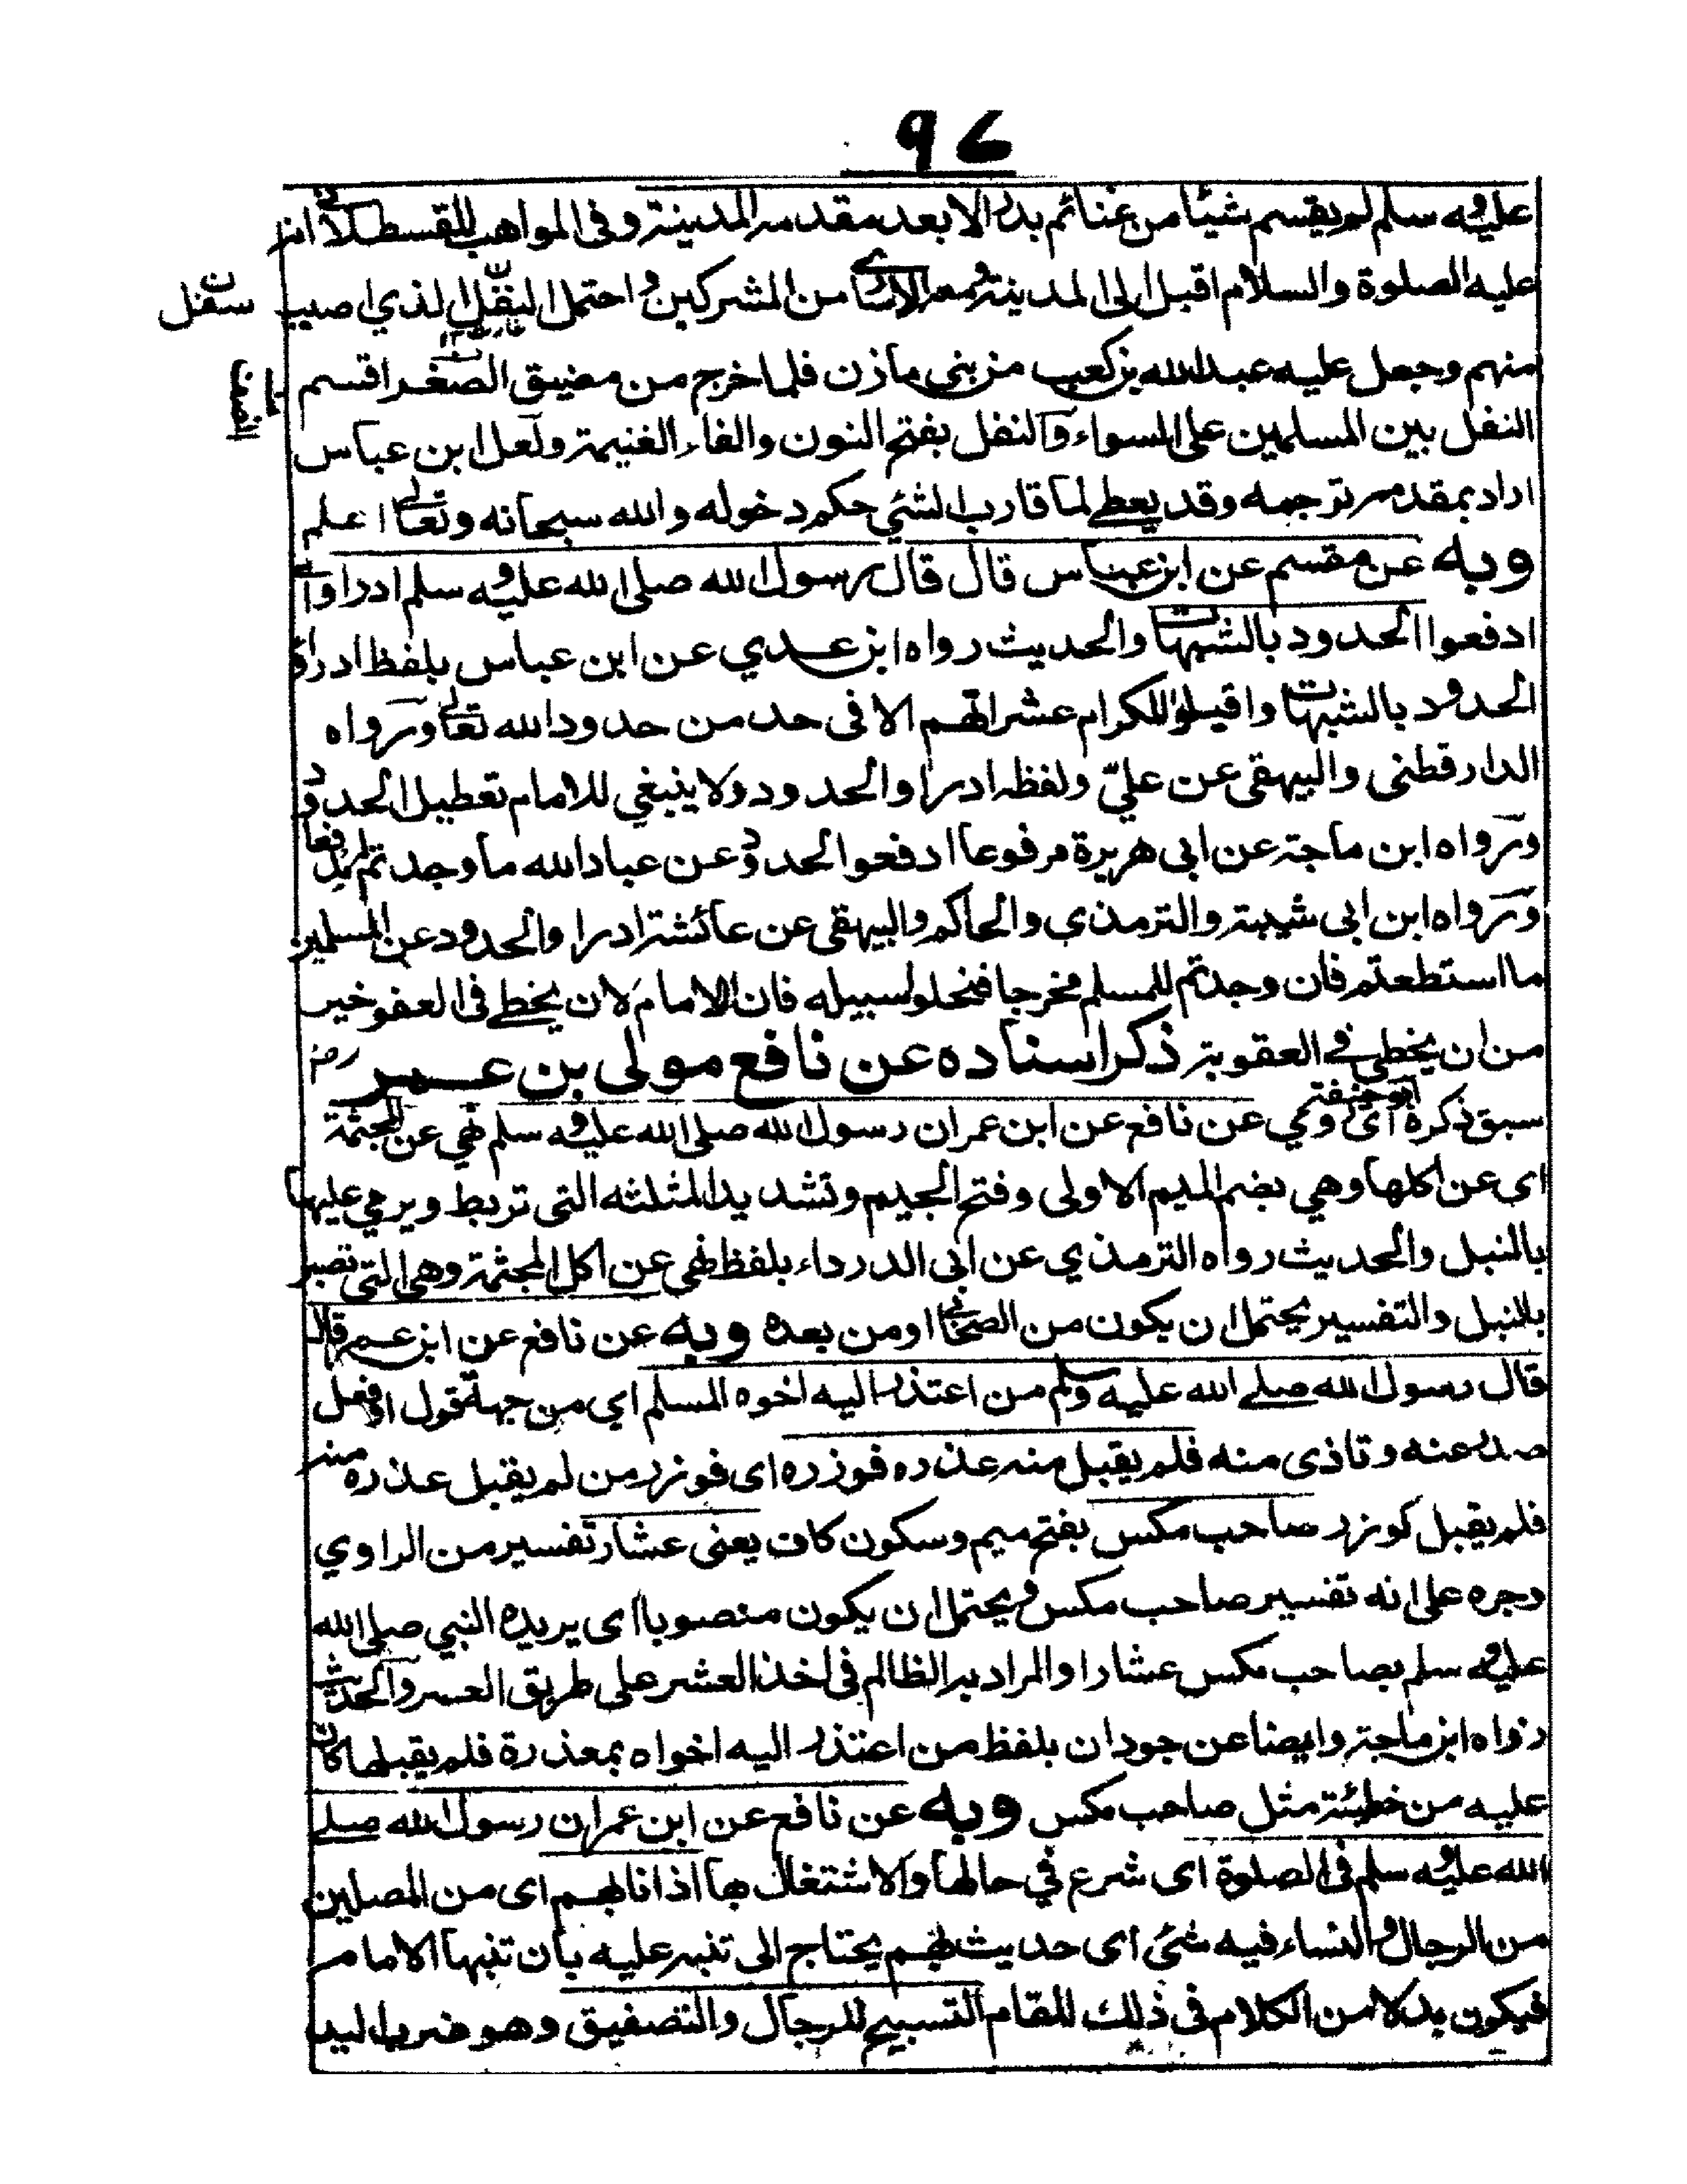 ٩٦
عليه وسلم لم يقسم شيئا من غنائم بدر الا بعد مقدمه المدينة وفى المواهب للقسطلانى انه
عليه الصلوة والسلام اقبل الى المدينة ومعه الاسارى من المشركين واحتمل النفل الذي اصيب
منهم وجعل عليه عبد الله بن كعب من بنى مازن فلما خرج من مضيق الصفرا قسم
النفل بين المسلمين على السواء والنفل بفتح النون والفاء الغنيمة ولعل ابن عباس
اراد بمقدمه ترجمه وقد يعطى لما قارب الشئ حكم دخوله والله سبحانه وتعالى اعلم
وبه عن مقسم عن ابن عباس قال قال رسول الله صلى الله عليه وسلم ادراوا اى
ادفعوا الحدود بالشبهات والحديث رواه ابن عدي عن ابن عباس بلفظ ادراوا
الحدود بالشبهات واقيلوا الكرام عثراتهم الا فى حد من حدود الله تعالى ورواه
الدارقطنى والبيهقى عن عليّ ولفظه ادراوا الحدود ولا ينبغي للامام تعطيل الحدود
ورواه ابن ماجة عن ابى هريرة مرفوعا ادفعوا الحدود عن عباد الله ما وجدتم له مدفعا
ورواه ابن ابى شيبة والترمذي والحاكم والبيهقى عن عائشة ادراوا الحدود عن المسلمين
ما استطعتم فان وجدتم للمسلم مخرجا فخلوا سبيله فان الامام لان يخطى فى العفو خير
من ان يخطى في العقوبة ذكر اسناده عن نافع مولى بن عمر رض
سبق ذكره اى ابو حنيفة روي عن نافع عن ابن عمر ان رسول الله صلى الله عليه وسلم نهي عن المجثمة
اى عن اكلها وهي بضم الميم الاولى وفتح الجيم وتشديد المثلثه التى تربط ويرمي عليها
بالنبل والحديث رواه الترمذي عن ابى الدرداء بلفظ نهى عن اكل المجثمة وهى التى تصبر
بالنبل والتفسير يحتمل ان يكون من الصحابى او من بعده وبه عن نافع عن ابن عمر قال
قال رسول الله صلى الله عليه وسلم من اعتذر اليه اخوه المسلم اي من جهة قول او فعل
صدر عنه وتاذى منه فلم يقبل منه عذره فوزره اى فوزر من لم يقبل عذره منه
فلم يقبل كوزر صاحب مكس بفتح ميم وسكون كاف يعنى عشار تفسير من الراوي
وجره على انه تفسير صاحب مكس ويحتمل ان يكون منصوبا اى يريده النبي صلى الله
عليه وسلم بصاحب مكس عشارا والمراد به الظالم فى اخذ العشر على طريق العسر والحديث
رواه ابن ماجة وايضا عن جودان بلفظ من اعتذر اليه اخواه بمعذرة فلم يقبلها كان
عليه من خطيئة مثل صاحب مكس وبه عن نافع عن ابن عمر ان رسول الله صلى
الله عليه وسلم فى الصلوة اى شرع في حالها والاشتغال بها اذا نابهم اى من المصلين
من الرجال والنساء فيه شئ اى حديث لهم يحتاج الى تنبه عليه بان تنبها الامام
فيكون بدلا من الكلام فى ذلك المقام التسبيح للرجال والتصفيق وهو ضرب اليد